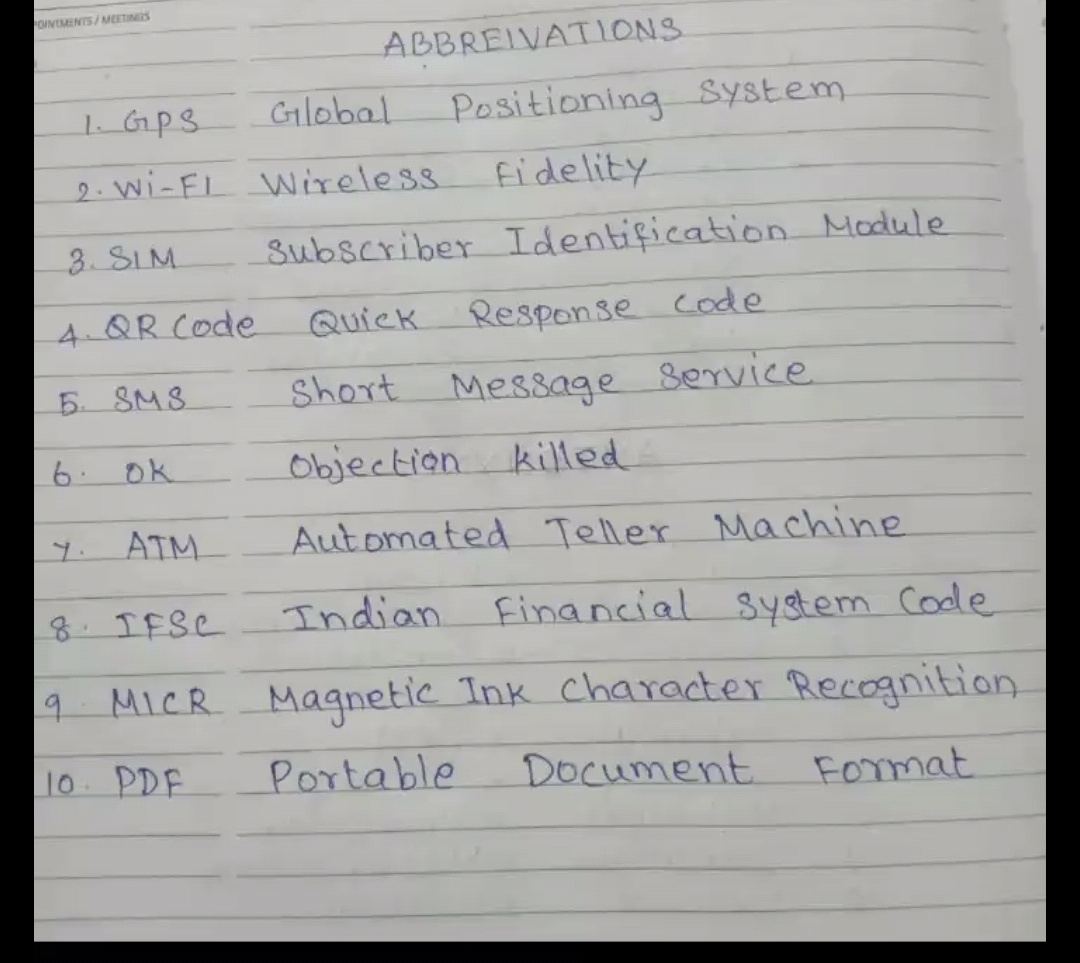 OINTMENTS / MEETINGS
ABBREIVATIONS
1. GPS Global Positioning System
2. Wi-FI Wireless Fidelity
3. SIM Subscriber Identification Module
4. QR Code Quick Response Code
5. SMS Short Message Service
6. OK Objection killed
7. ATM Automated Teller Machine
8. IFSC Indian Financial System Code
9 MICR Magnetic Ink Character Recognition
10. PDF Portable Document Format